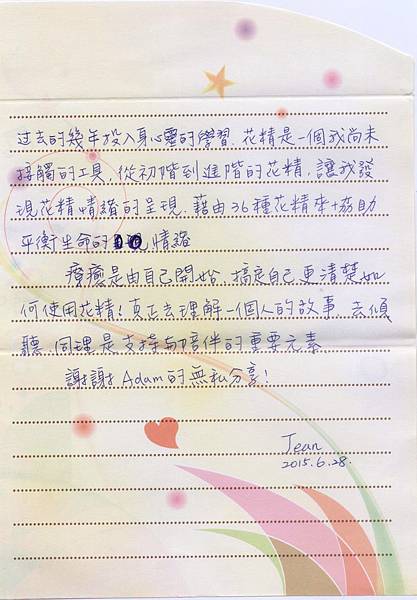 过去的幾年投入身心靈的學習.花精是一個我尚未
接觸的工具.從初階到進階的花精.讓我發
現花精情緒的呈現.藉由36種花精來協助
平衡生命的 情緒
療癒是由自己開始.搞定自己更清楚如
何使用花精!真正去理解一個人的故事 去傾
聽.同理是支持与陪伴的重要元素
謝謝Adam的無私分享!
Jean
2015.6.28.